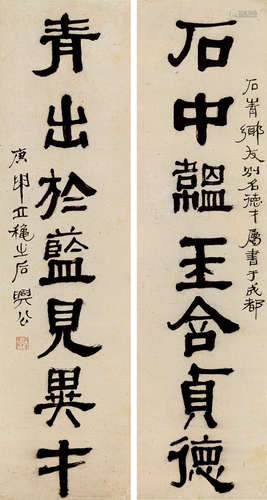 石中韞玉含貞德
石青鄉友別名德才屬書于成都
青出於藍見異才
庚申立穐之后興公